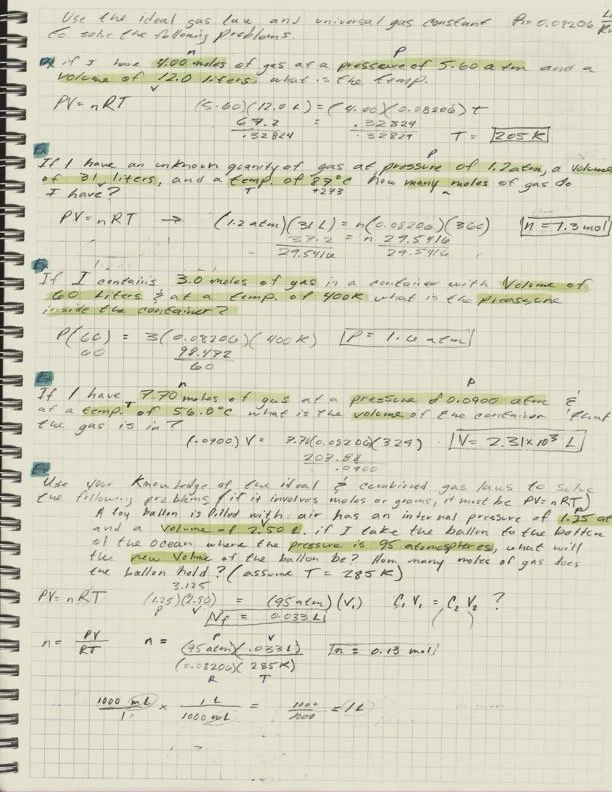 Use the ideal gas law and universal gas constant R=0.08206 L
to solve the following problems.
n P
if I have 4.00 moles of gas at a pressure of 5.60 atm and a
volume of 12.0 liters, what is the temp.
V
PV = nRT (5.60)(12.0 L) = (4.00)(0.08206) T
67.2 = .32824
.32824 .32824 T = 205 K
P
If I have an unknown quanity of gas at pressure of 1.2 atm, a volume
of 31 liters, and a temp. of 87°C how many moles of gas do
I have? T +273 n
PV = nRT → (1.2 atm)(31 L) = n(0.08206)(360) n = 1.3 mol
37.2 = n 29.5416
29.5416 29.5416
If I contains 3.0 moles of gas in a container with Volume of
60 Liters & at a temp. of 400K what is the preassure
inside the container?
P(60) = 3(0.08206)(400 K) P = 1.6 atm
60 98.472
60
n P
If I have 7.70 moles of gas at a pressure of 0.0900 atm &
at a temp. T of 56.0°C what is the volume of the container that
the gas is in?
(.0900) V = 7.70(0.08206)(329) V = 2.31x10³ L
207.88
.0900
Use your knowledge of the ideal & combined gas laws to solve
the following problems (if it involves moles or grams, it must be PV=nRT)
P
A toy ballon is filled with air has an internal pressure of 1.25 at
and a volume of 2.50 L. if I take the ballon to the bottom
of the ocean where the pressure is 95 atmospheres, what will
the new Volume of the ballon be? How many moles of gas does
the ballon hold? (assume T = 285 K)
3.125
PV = nRT (1.25)(2.50) = (95 atm)(V₁) C₁V₁ = C₂V₂ ?
P V Vf = 0.033 L
P V
n = PV n = (95 atm)(.033L) n = 0.13 mol
RT (0.08206)(285 K)
R T
1000 mL x 1 L = 1000 = 1 L
1 1000 mL 1000